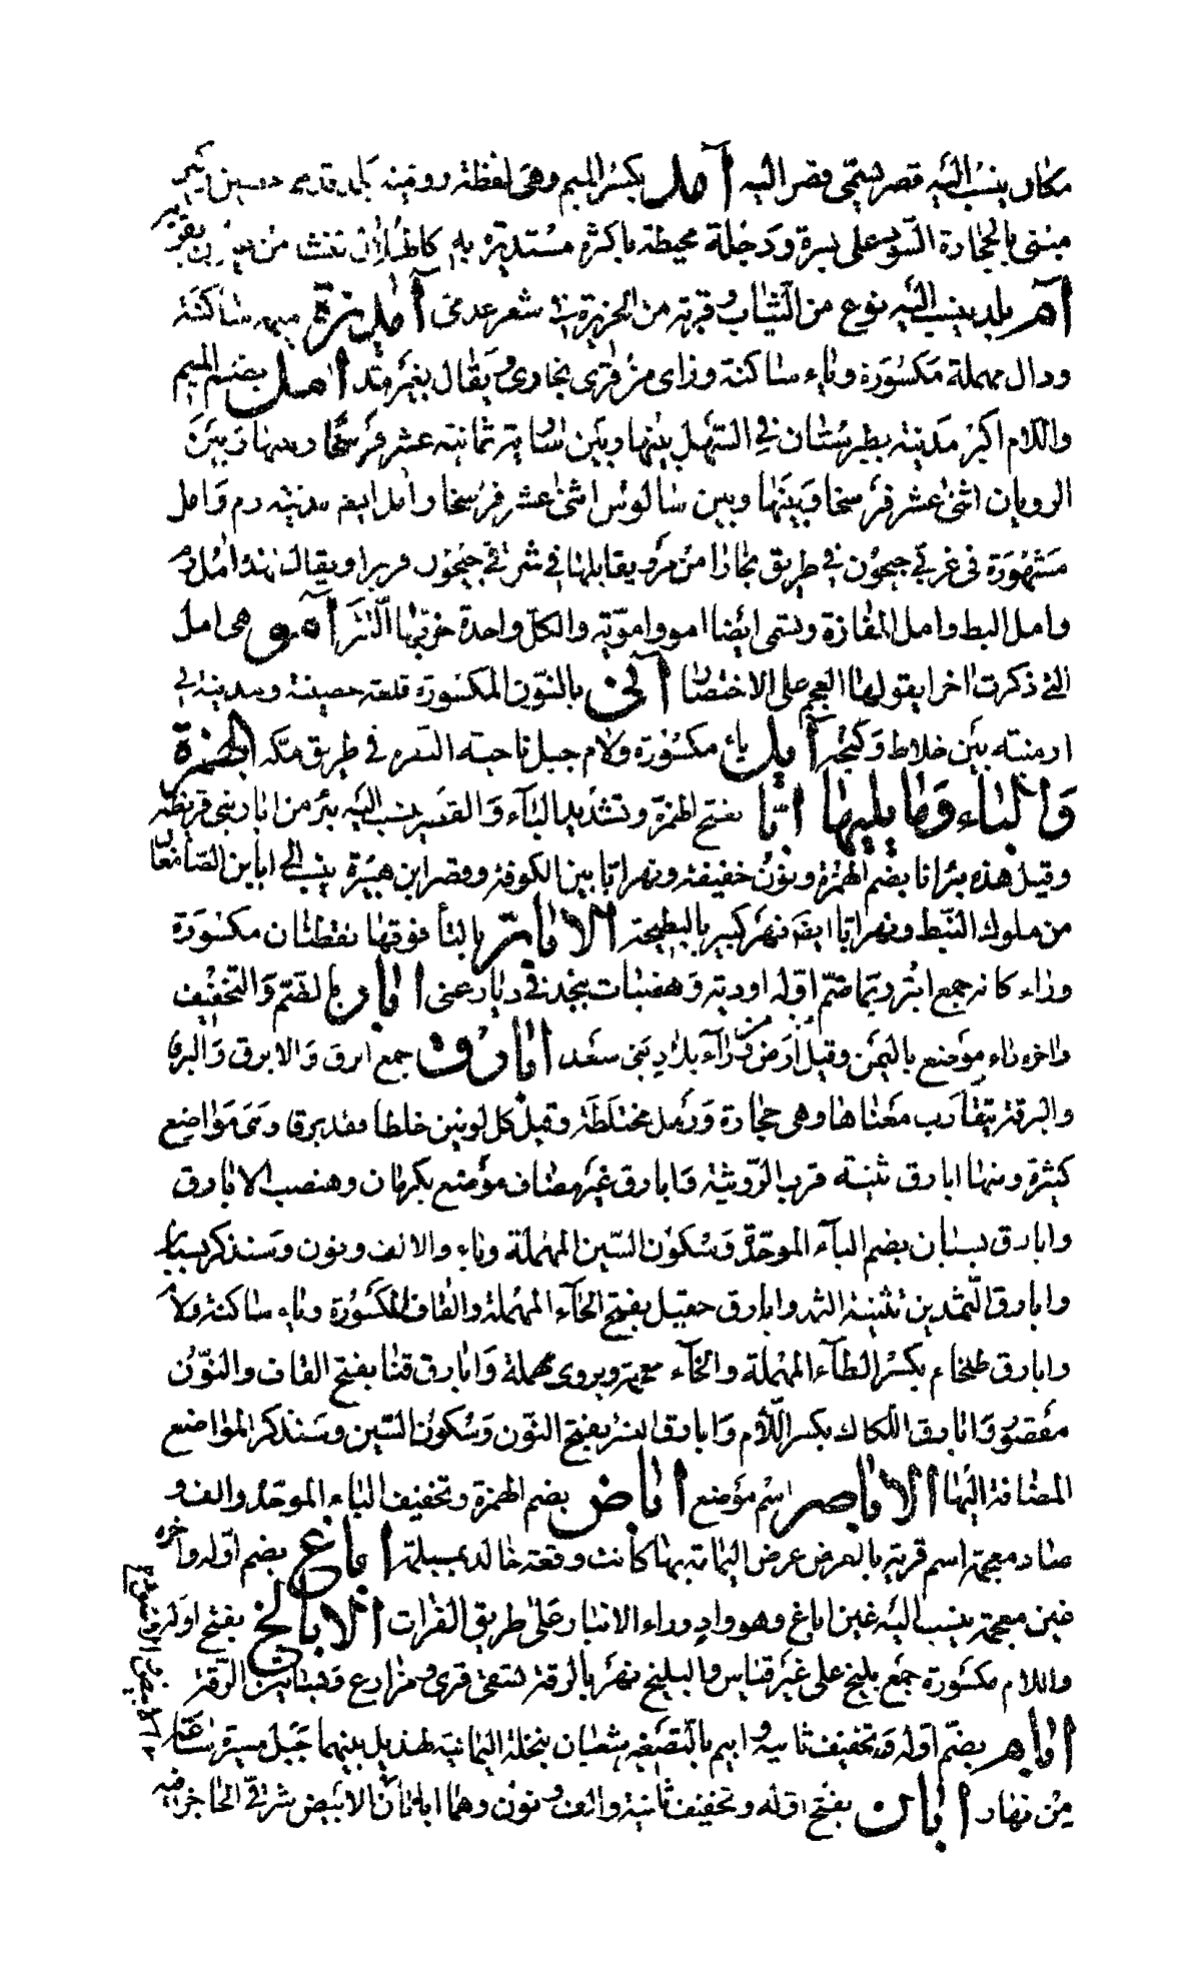 مكان ينسب اليه قصر يسمى قصر اليه آمد بكسر الميم وهى لفظة رومية بلد قديم حصين ركين
مبنى بالحجارة السود على نسرة ودجلة محيطة باكثره مستديرة به كالهلال تنشا من عيون بقربه
آمر بلد ينسب اليه نوع من الثياب وقرية من الجزيرة شعر عدى آمديزة ميم ساكنة
ودال مهملة مكسورة وياء ساكنة وزاى من قرى بخارى ويقال بغير مد آمل بضم الميم
واللام اكبر مدينة بطبرستان في السهل بينها وبين سارية ثمانية عشر فرسخا وبينها وبين
الرويان اثنى عشر فرسخا وبينها وبين سالوس اثنى عشر فرسخا وامل ايضا مدينة زم وامل
مشهورة فى غربى جيحون في طريق بخارا من مرو ويقابلها في شرقى جيحون فربر ويقال لهذه امل زم
وامل الشط وامل المفازة وتسمى ايضا امو واموية والكل واحدة خربها التتر آمو هى امل
التى ذكرت اخرا يقولها العجم على الاختصار آنى بالنون المكسورة قلعة حصينة ومدينة في
ارمينية بين خلاط وكنجه آيل ياء مكسورة ولام جبل ناحية النقرة في طريق مكه الهمزة
والباء وما يليها ابّا بفتح الهمزة وتشديد الباء والقصر ينسب اليه بئر من ابار بنى قريظة
وقيل هذه بئر انا بضم الهمزة ونون خفيفة ونهر ابا بين الكوفة وقصر ابن هبيرة ينسب الى ابا بن الصامغان
من ملوك النبط ونهر ابا ايضا نهر كبير بالبطيحة الاباتر بالتاء فوقها نقطتان مكسورة
وراء كانه جمع ابتر وربما ضم اوله اودية وهضبات بنجد في ديار غنى ابار بالضم والتخفيف
واخره راء موضع باليمن وقيل ارض من وراء بلاد بنى سعد ابارق جمع ابرق والابرق والبرقا
والبرقة يتقارب معناها وهى حجارة ورمل مختلطة وقيل كل لونين خلطا فقد برقا وهى مواضع
كثيرة ومنها ابارق ثنية قرب الرويثة وابارق غير مضاف موضع بكرمان وهضب الابارق
وابارق بسيان بضم الباء الموحدة وسكون السين المهملة وياء والالف ونون وسنذكر بسيان
وابارق الثمدين تثنية الثمد وابارق حقيل بفتح الحاء المهملة والقاف المكسورة وياء ساكنة ولام
وابارق طلخام بكسر الطاء المهملة والخاء معجمة ويروى مهملة وابارق قنا بفتح القاف والنون
مقصور وابارق اللكاك بكسر اللام وابارق النسر بفتح النون وسكون السين وسنذكر المواضع
المضافة اليها الاباصر اسم موضع اباض بضم الهمزة وتخفيف الباء الموحدة والف و
ضاد معجمة اسم قرية بالعرض عرض اليمامة بها كانت وقعة خالد بمسيلمة اباغ بضم اوله واخره
غين معجمة ينسب اليه عين اباغ وهو واد وراء الانبار على طريق الفرات الابالخ بفتح اوله
واللام مكسورة جمع بليخ على غير قياس والبليخ نهر بالرقة يسقى قرى ومزارع وبساتين الرقة
ابام بضم اوله وتخفيف ثانيه وابيم بالتصغير شعبان بنخلة اليمانية لهذيل بينهما جبل مسيرة ساعة
من نهار ابان بفتح اوله وتخفيف ثانيه والف ونون وهما ابانان الابيض شرقى الحاجر فيه